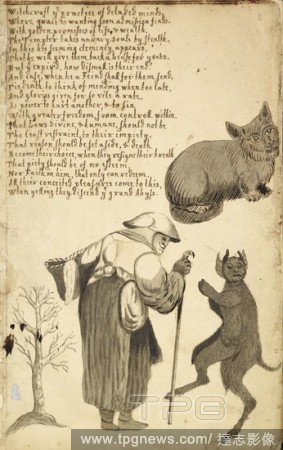 Witchcraft yᵉ practice of deluded minds,
Where grace is wanting soon admission finds.
With golden promises of life, & wealth,
The Tempter takes unwary souls by stealth,
In this his seeming clemency appears,
What he will give them back a lease for years.
But if expired, how dismal is their end?
And cast, when the Fiend shall for them send.
Tis death to think of minding when too late,
And glory's given for so vile a rate.
As power to hurt another, & to sin,
With greater freedom, from controll within.
That Laws divine, & humane, should not be
The least restraint to their impiety.
That reason should be set aside, & death
Become their choice, when they resign their breath
That pity should be of no esteem
Nor Faith in him, that only can redeem.
All their conceited pleasures comes to this,
When yelling they descend yᵉ grand Abyss.
TPG
www.tpgnews.com/達志影像